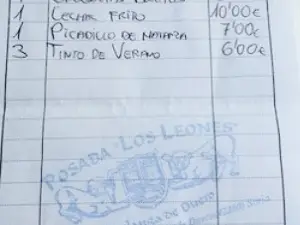 1 LECHAZ FRITO 10'00€
1 PICADILLO DE MATANZA 7'00€
3 TINTO DE VERANO 6'00€
POSADA "LOS LEONES"
de Duero